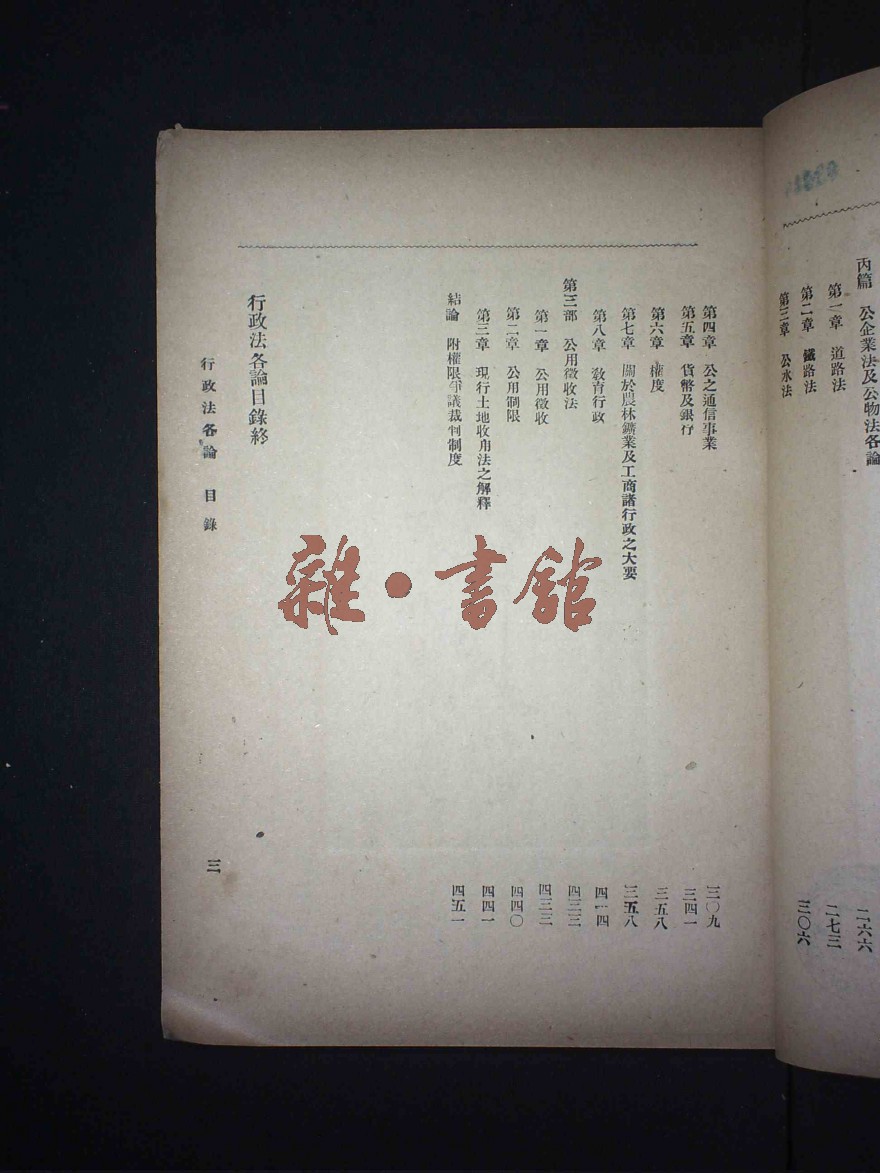 丙篇 公企業法及公物法各論
第一章 道路法 二六六
第二章 鐵路法 二七三
第三章 公水法 三〇六
第四章 公之通信事業 三〇九
第五章 貨幣及銀行 三四一
第六章 權度 三五八
第七章 關於農林鑛業及工商諸行政之大要 三五八
第八章 敎育行政 四一四
第三部 公用徵收法 四三三
第一章 公用徵收 四三三
第二章 公用制限 四四〇
第三章 現行土地收用法之解釋 四四一
結論 附權限爭議裁判制度 四五一
行政法各論目錄終
行政法各論 目錄
三
雜·書館